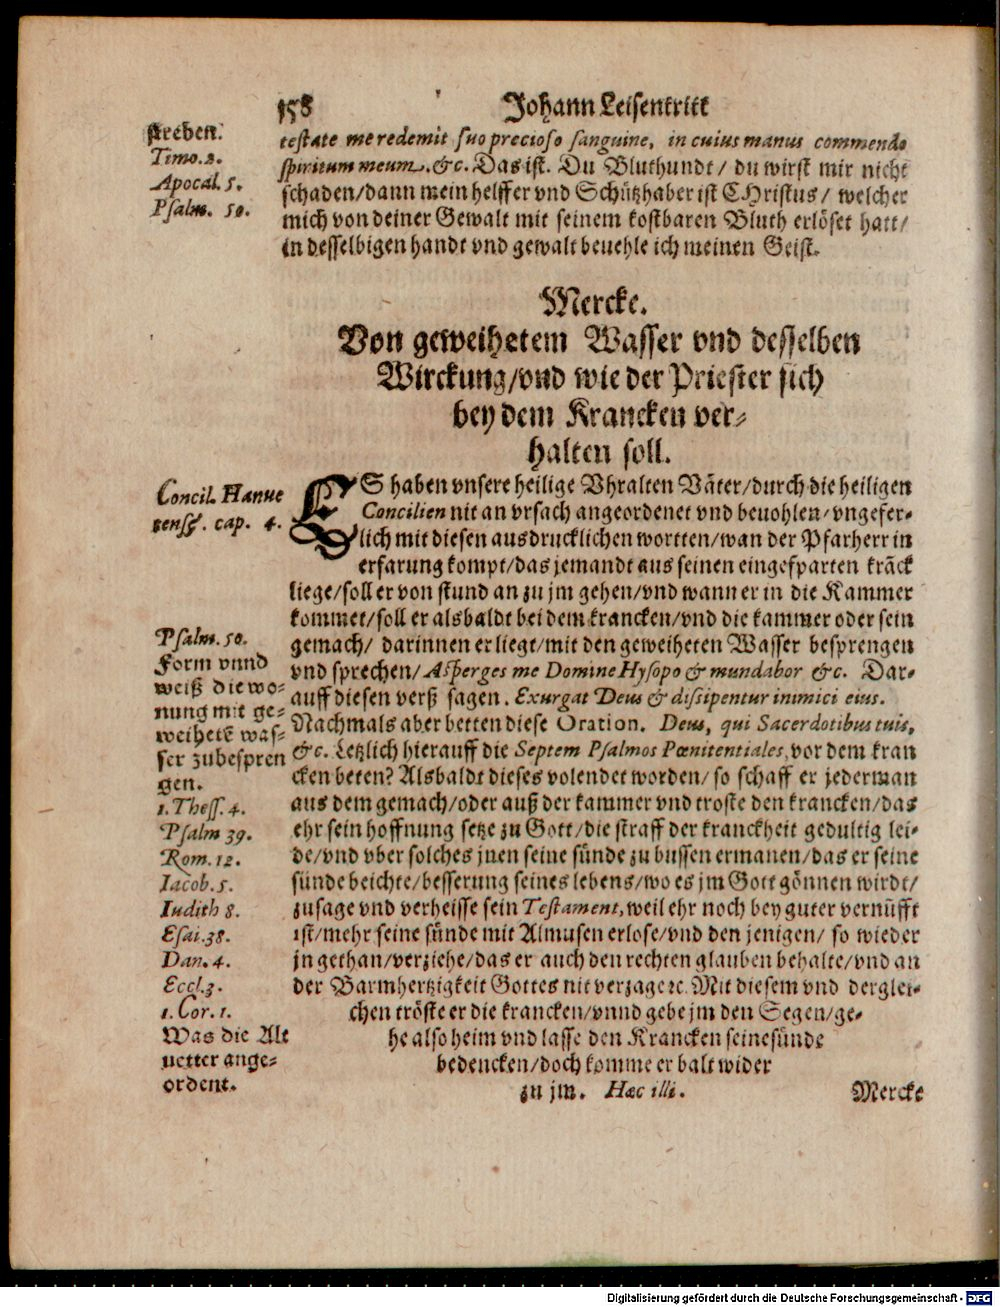 158 Johann Leisentritt
streben.
Timo. 2.
Apocal. 5.
Psalm. 50.
testate me redemit suo precioso sanguine, in cuius manus commendo
spiritum meum. &c. Das ist. Du Bluthundt / du wirst mir nicht
schaden/dann mein helffer vnd Schützhaber ist CHristus / welcher
mich von deiner Gewalt mit seinem kostbaren Bluth erlöset hatt/
in desselbigen handt vnd gewalt beuehle ich meinen Geist.
Mercke.
Von geweihetem Wasser vnd desselben
Wirckung/vnd wie der Priester sich
bey dem Krancken ver-
halten soll.
Concil. Hanue
tensz. cap. 4.
Psalm. 50.
Form vnnd
weiß die wo-
nung mit ge-
weihetē was-
ser zubespren
gen.
1. Thess. 4.
Psalm 39.
Rom. 12.
Iacob. 5.
Iudith 8.
Esai. 38.
Dan. 4.
Eccl. 3.
1. Cor. 1.
Was die Alt
uetter ange-
ordent.
ES haben vnsere heilige Vhralten Väter/durch die heiligen
Concilien nit an vrsach angeordenet vnd beuohlen/vngefer-
lich mit diesen ausdrucklichen wortten/wan der Pfarherr in
erfarung kompt/das jemandt aus seinen eingepfarten kräck
liege/soll er von stund an zu jm gehen/vnd wann er in die Kammer
kommet/soll er alsbaldt bei dem krancken/vnd die kammer oder sein
gemach/ darinnen er liegt/mit den geweiheten Wasser besprengen
vnd sprechen/ Asperges me Domine Hysopo & mundabor &c. Dar-
auff diesen verß sagen. Exurgat Deus & dissipentur inimici eius.
Nachmals aber betten diese Oration. Deus, qui Sacerdotibus tuis,
&c. Letzlich hierauff die Septem Psalmos Pœnitentiales, vor dem kran
cken beten? Alsbaldt dieses volendet worden/ so schaff er jederman
aus dem gemach/oder auß der kammer vnd troste den krancken/das
ehr sein hoffnung setze zu Gott/die straff der kranckheit gedultig lei-
de/vnd vber solches jnen seine sünde zu bussen ermanen/das er seine
sünde beichte/besserung seines lebens/wo es jm Gott gönnen wirdt/
zusage vnd verheisse sein Testament, weil ehr noch bey guter vernüfft
ist/mehr seine sünde mit Almusen erlose/vnd den jenigen/ so wieder
jn gethan/verziehe/das er auch den rechten glauben behalte/vnd an
der Barmhertzigkeit Gottes nit verzage ꝛc. Mit diesem vnd derglei-
chen tröste er die krancken/vnnd gebe jm den Segen/ge-
he also heim vnd lasse den Krancken seine sünde
bedencken/doch komme er balt wider
zu jm. Hæc illi.
Mercke
Digitalisierung gefördert durch die Deutsche Forschungsgemeinschaft - DFG